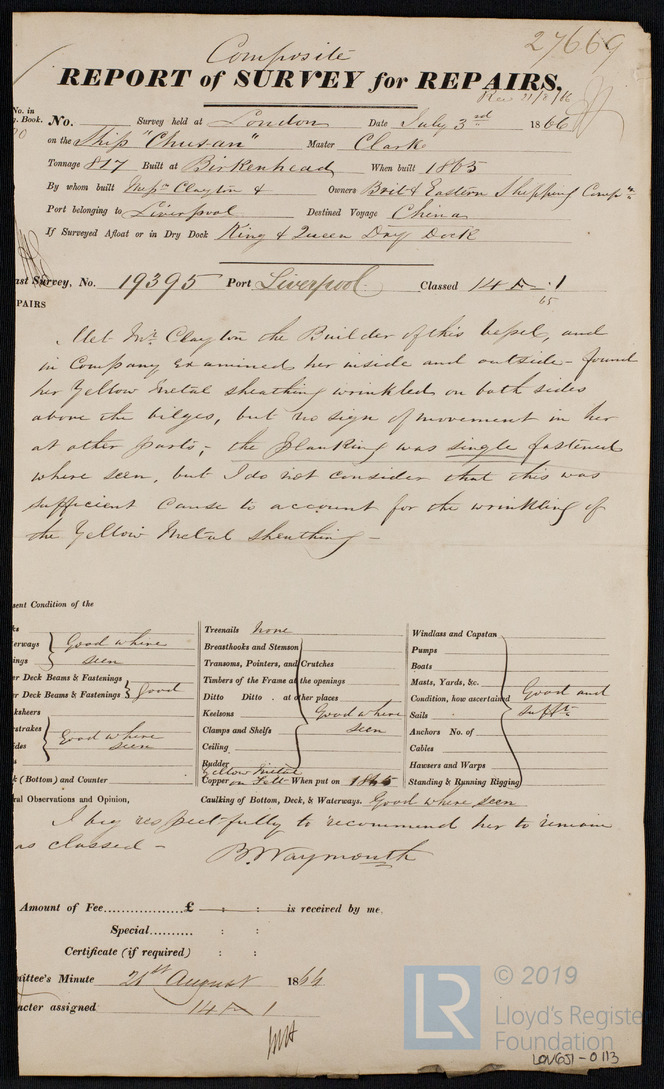 27669
Composite
REPORT of SURVEY for REPAIRS,
Rec 21/8/66
No. in
. Book.
No. Survey held at London Date July 3rd 1866
on the Ship "Chusan" Master Clark
Tonnage 817 Built at Birkenhead When built 1865
By whom built Clayton & Owners Brit & Eastern Shipping Compy
Port belonging to Liverpool Destined Voyage China
If Surveyed Afloat or in Dry Dock King & Queen Dry Dock
ast Survey, No. 19395 Port Liverpool Classed 14 1
65
PAIRS
Met Mr Clayton the Builder of this Vessel, and
in Company examined her inside and outside - found
her Yellow Metal sheathing wrinkled on both sides
above the bilges, but no sign of movement in her
at other parts; the planking was single fastened
where seen, but I do not consider that this was
sufficient cause to account for the wrinkling of
the Yellow Metal sheathing -
sent Condition of the
ks
erways Good where
ings seen
er Deck Beams & Fastenings
er Deck Beams & Fastenings Good
ksheers
strakes Good where
ides seen
s
k (Bottom) and Counter
Treenails None
Breasthooks and Stemson
Transoms, Pointers, and Crutches
Timbers of the Frame at the openings
Ditto Ditto . at other places
Keelsons Good where
Clamps and Shelfs seen
Ceiling
Rudder
Yellow Metal
Copper on Felt When put on 1865
Windlass and Capstan
Pumps
Boats
Masts, Yards, &c.
Condition, how ascertained Good and
Sails sufft
Anchors No. of
Cables
Hawsers and Warps
Standing & Running Rigging
Caulking of Bottom, Deck, & Waterways. Good where seen
ral Observations and Opinion,
I beg respectfully to recommend her to remain
as classed -
B. Waymouth
Amount of Fee.................. £ : : is received by me.
Special.......... : :
Certificate (if required) : :
mittee's Minute August 1866
acter assigned 14 1
LR
© 2019
Lloyd's Register
Foundation
LON651-0113